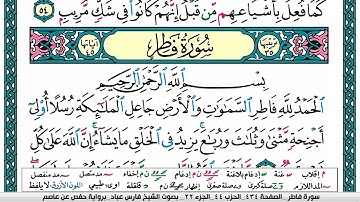 كَمَا فُعِلَ بِأَشْيَاعِهِم مِّن قَبْلُ إِنَّهُمْ كَانُوا۟ فِى شَكٍّ مُّرِيبٍۭ ٥٤
سُورَةُ فَاطِرٍ
بِسْمِ ٱللَّهِ ٱلرَّحْمَٰنِ ٱلرَّحِيمِ
ٱلْحَمْدُ لِلَّهِ فَاطِرِ ٱلسَّمَٰوَٰتِ وَٱلْأَرْضِ جَاعِلِ ٱلْمَلَٰٓئِكَةِ رُسُلًا أُو۟لِىٓ
أَجْنِحَةٍ مَّثْنَىٰ وَثُلَٰثَ وَرُبَٰعَ يَزِيدُ فِى ٱلْخَلْقِ مَا يَشَآءُ إِنَّ ٱللَّهَ عَلَىٰ كُلِّ
سورة فاطر الصفحة ٤٣٤ الحزب ٤٤ الجزء ٢٢ بصوت الشيخ فارس عباد برواية حفص عن عاصم